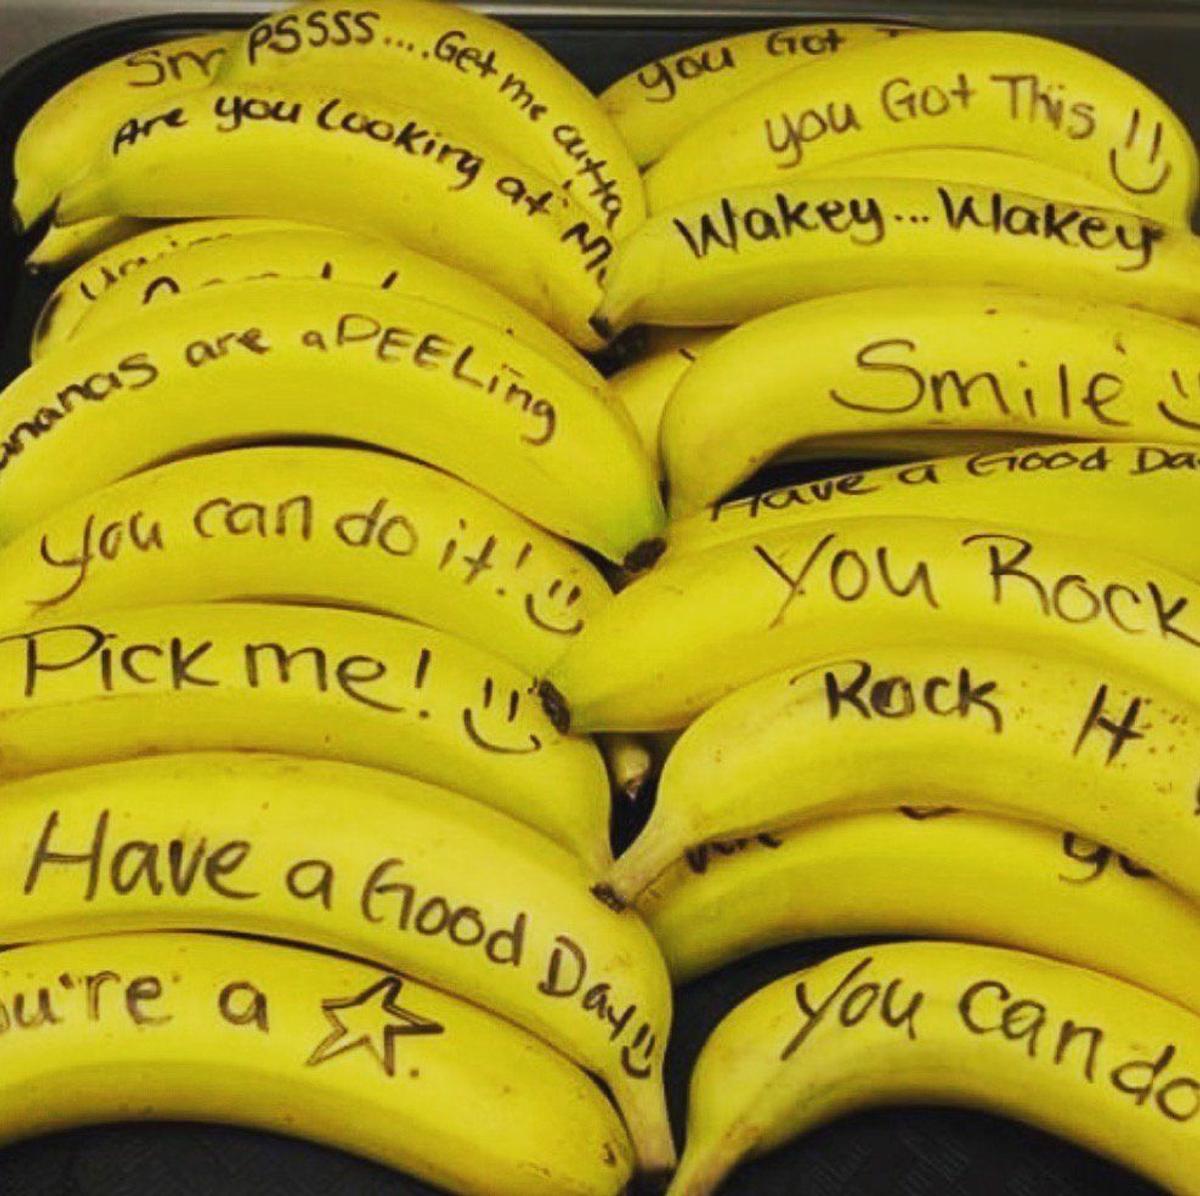 PSSSS....Get me outta
Are you looking at
ananas are aPEELing
you can do it!
Pick me!
Have a Good Day
ou're a
you Got
you Got This
Wakey...Wakey
Smile
Have a Good Da
You Rock
Rock it
you can do